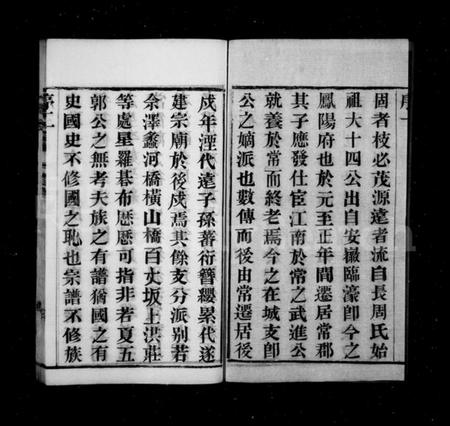 序一
固者枝必茂源遠者流自長周氏始
祖大十四公出自安徽臨濠卽今之
鳳陽府也於元至正年間遷居常郡
其子應發仕宦江南於常之武進公
就養於常而終老焉今之在城支卽
公之嫡派也數傳而後由常遷居後
戍年湮代遠子孫蕃衍簪纓累代遂
建宗廟於後戍焉其餘支分派別若
余澤蠡河橋橫山橋百丈坂上洪莊
等處星羅碁布歷歷可指非若夏五
郭公之無考夫族之有譜猶國之有
史國史不修國之恥也宗譜不修族
序二